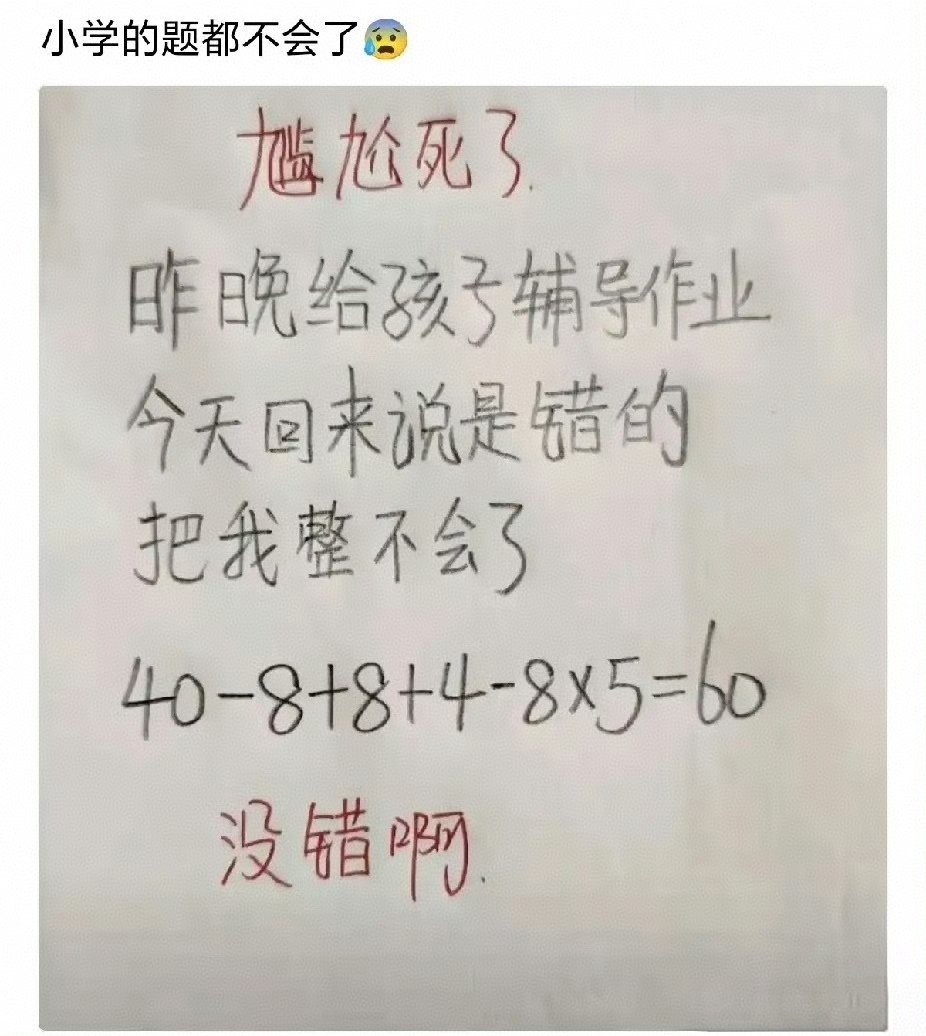 小学的题都不会了😰
尴尬死了.
昨晚给孩子辅导作业
今天回来说是错的
把我整不会了
40-8+8+4-8×5=60
没错啊.